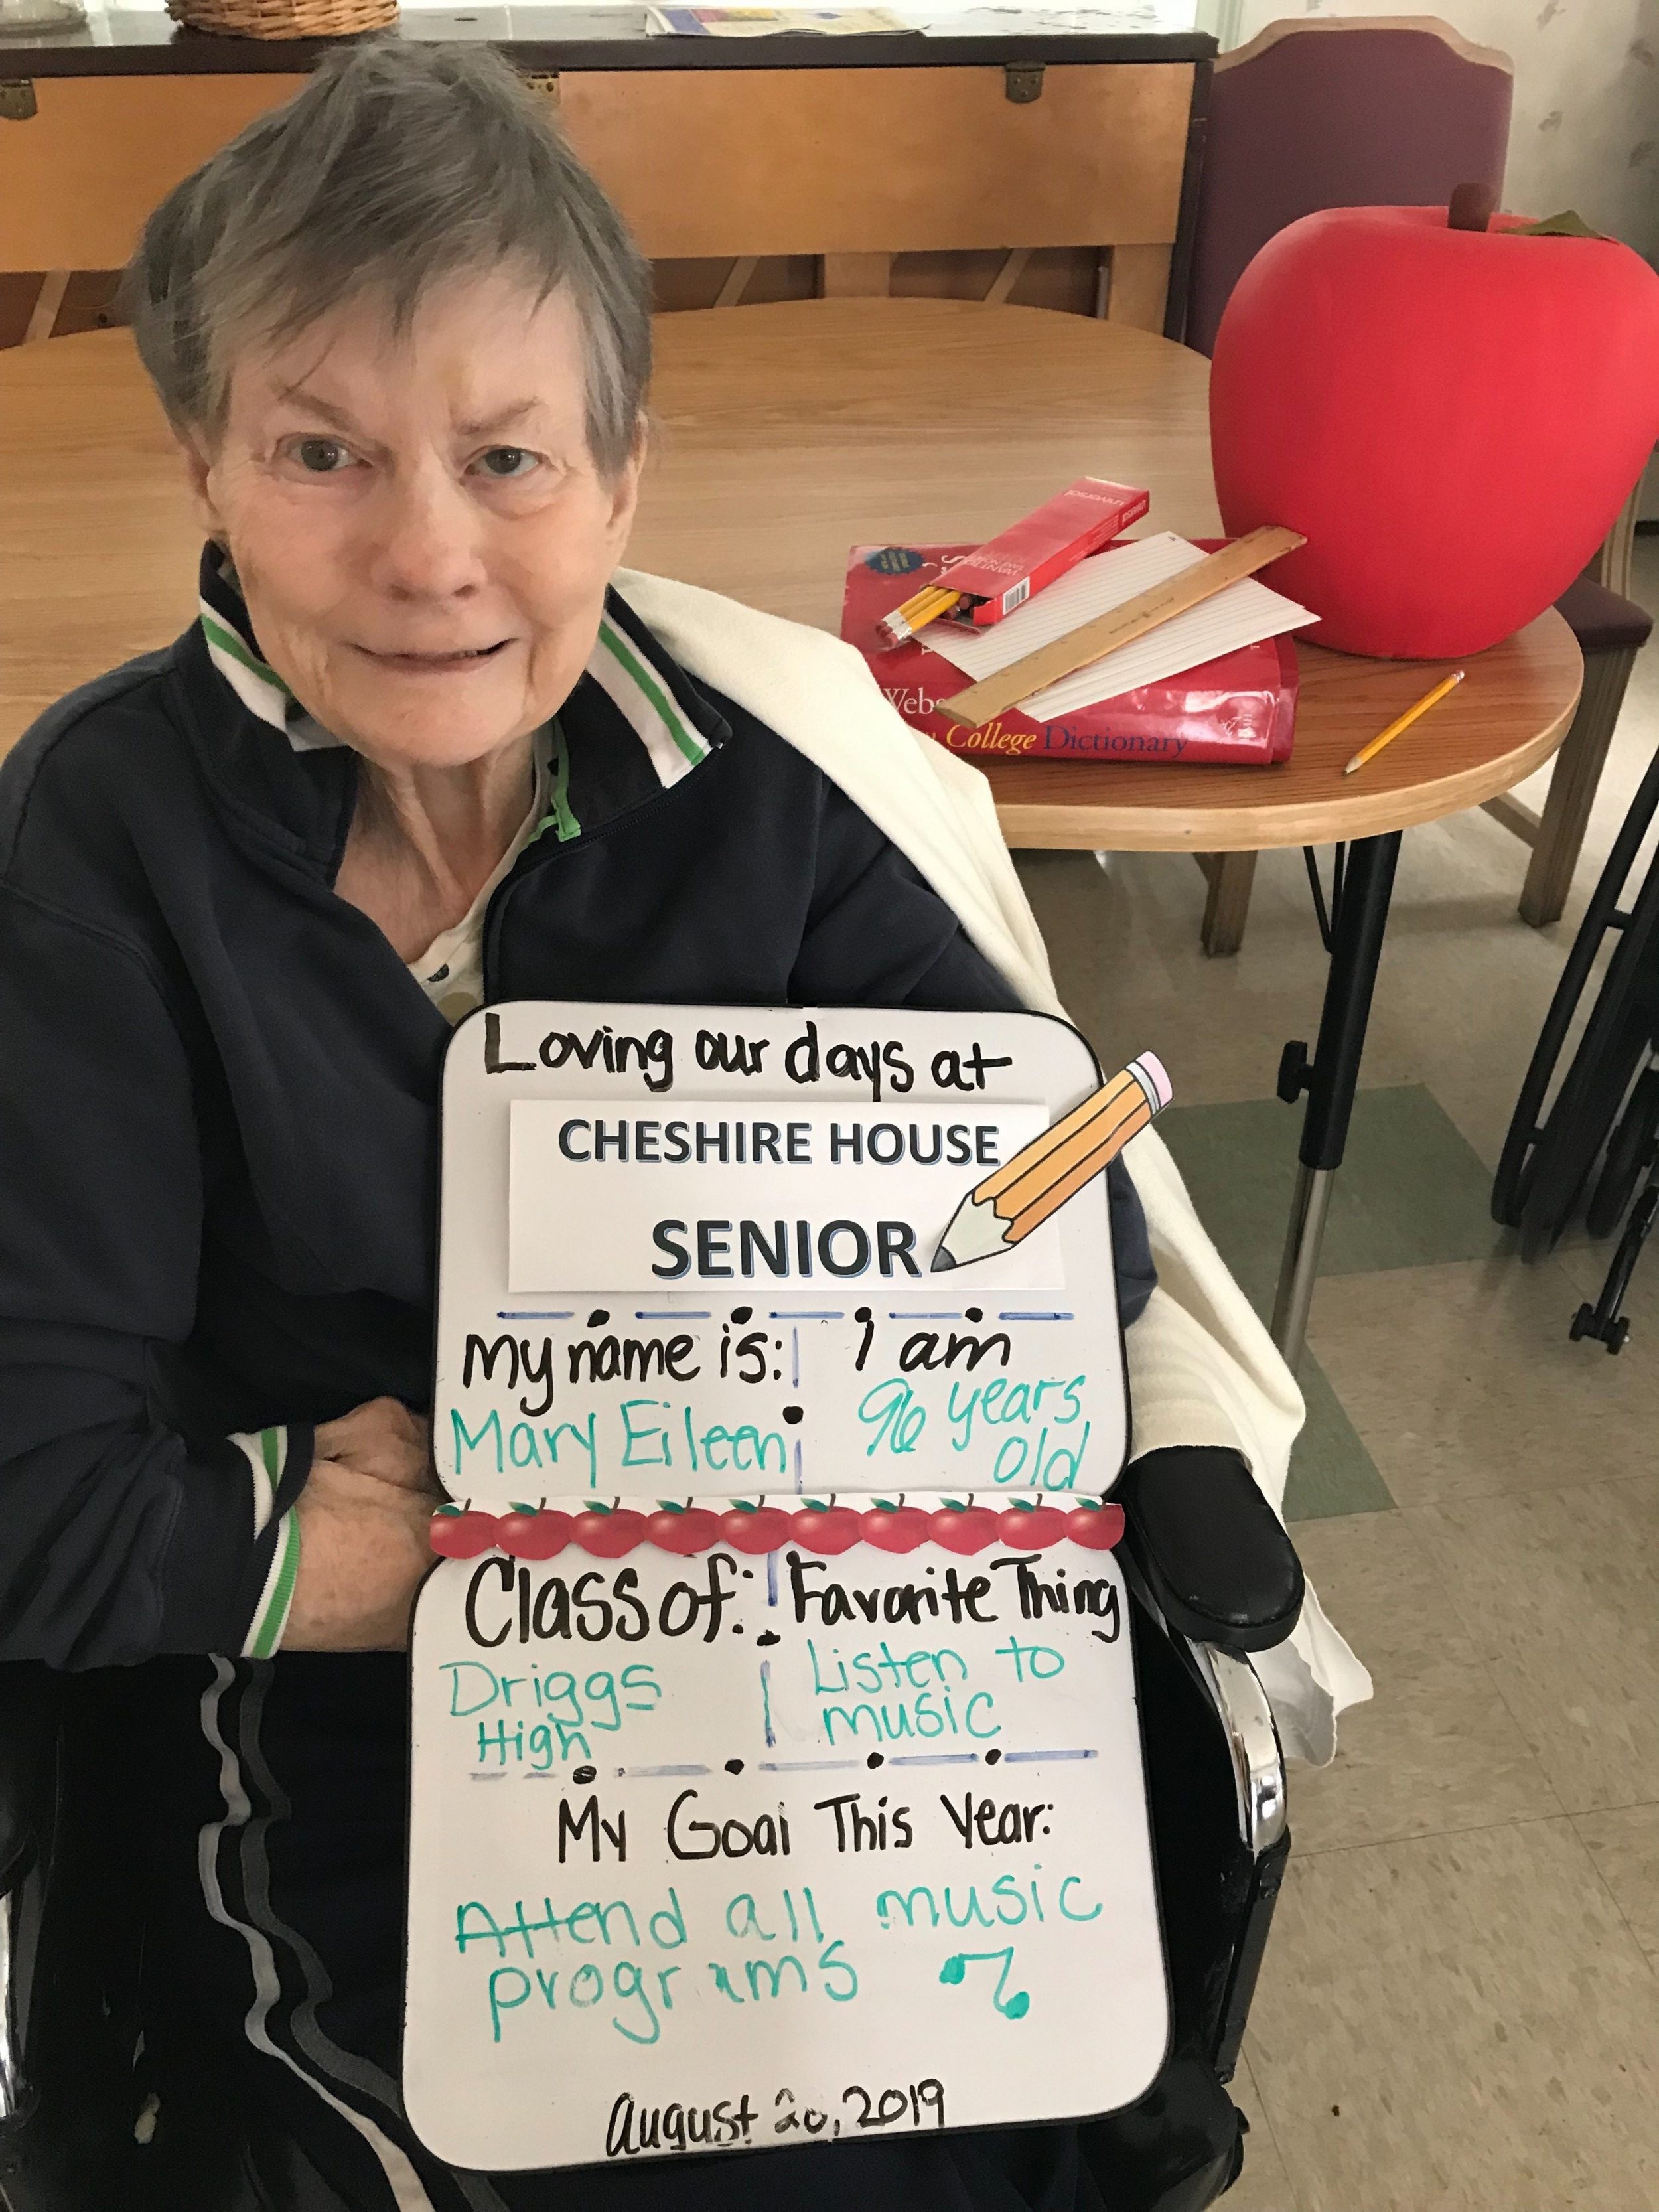 Loving our days at
CHESHIRE HOUSE
SENIOR
my name is:
Mary Eileen
i am
96 years
old
Class of:
Driggs
High
Favorite Thing
Listen to
music
My Goal This Year:
Attend all music
programs
August 20, 2019
UNIVERSAL
College Dictionary